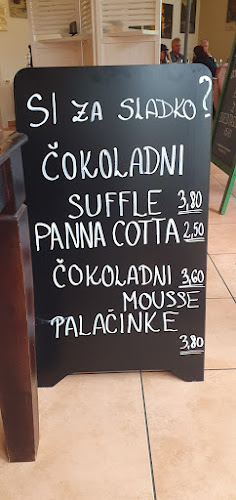 SI ZA SLADKO?
ČOKOLADNI
SUFFLE 3,80
PANNA COTTA 2,50
ČOKOLADNI 3,60
MOUSSE
PALAČINKE
3,80